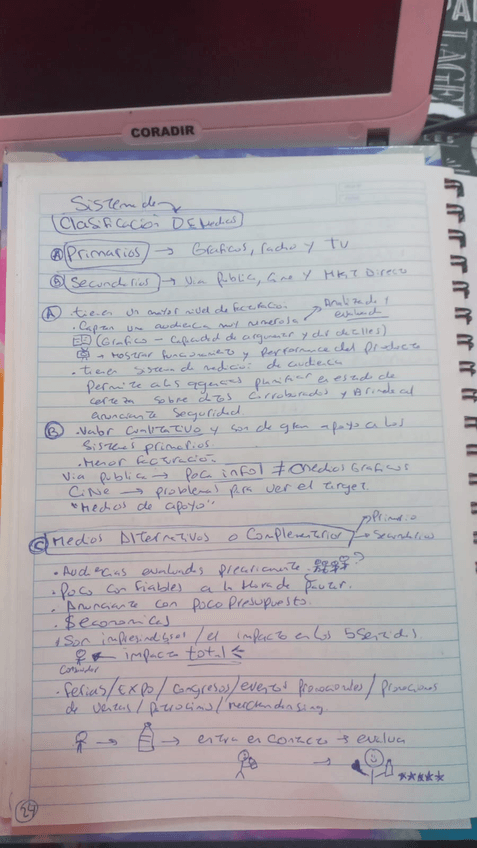 CORADIR
Sistema de
Clasificación DE Medios
A Primarios → Graficos, radio y TV
B Secundarios → Via publica, Cine y MKT Directo
A tienen un mayor nivel de facturación
• Captan una audiencia muy numerosa → Analizada y
evaluada
(Grafico – Capacidad de argumentar y dar detalles)
→ Mostrar funcionamiento y performance del Producto
• tienen sistema de medicion de audiencia
Permite a las agencias planificar en estado de
certeza sobre datos corroborados y Brinda al
anunciante Seguridad
B • Valor cualitativo y son de gran apoyo a los
Sistemas primarios
• Menor facturación
Via publica → poca info ≠ Medios Graficos
CiNe → problemas para ver el target
"Medios de apoyo"
C Medios Alternativos o Complementarios → Primario
→ Secundarios
• Audiencias evaluadas precariamente ?
• Poco confiables a la Hora de pautar.
• Anunciante con poco presupuesto.
• $economicas
• Son / el impacto en los 5 Sentidos
← impacto total
• ferias/Expo/congresos/eventos promocionales/promociones
de ventas/patrocinios/merchandising.
→ → entra en contacto → evalua
→ ★★★★★
24